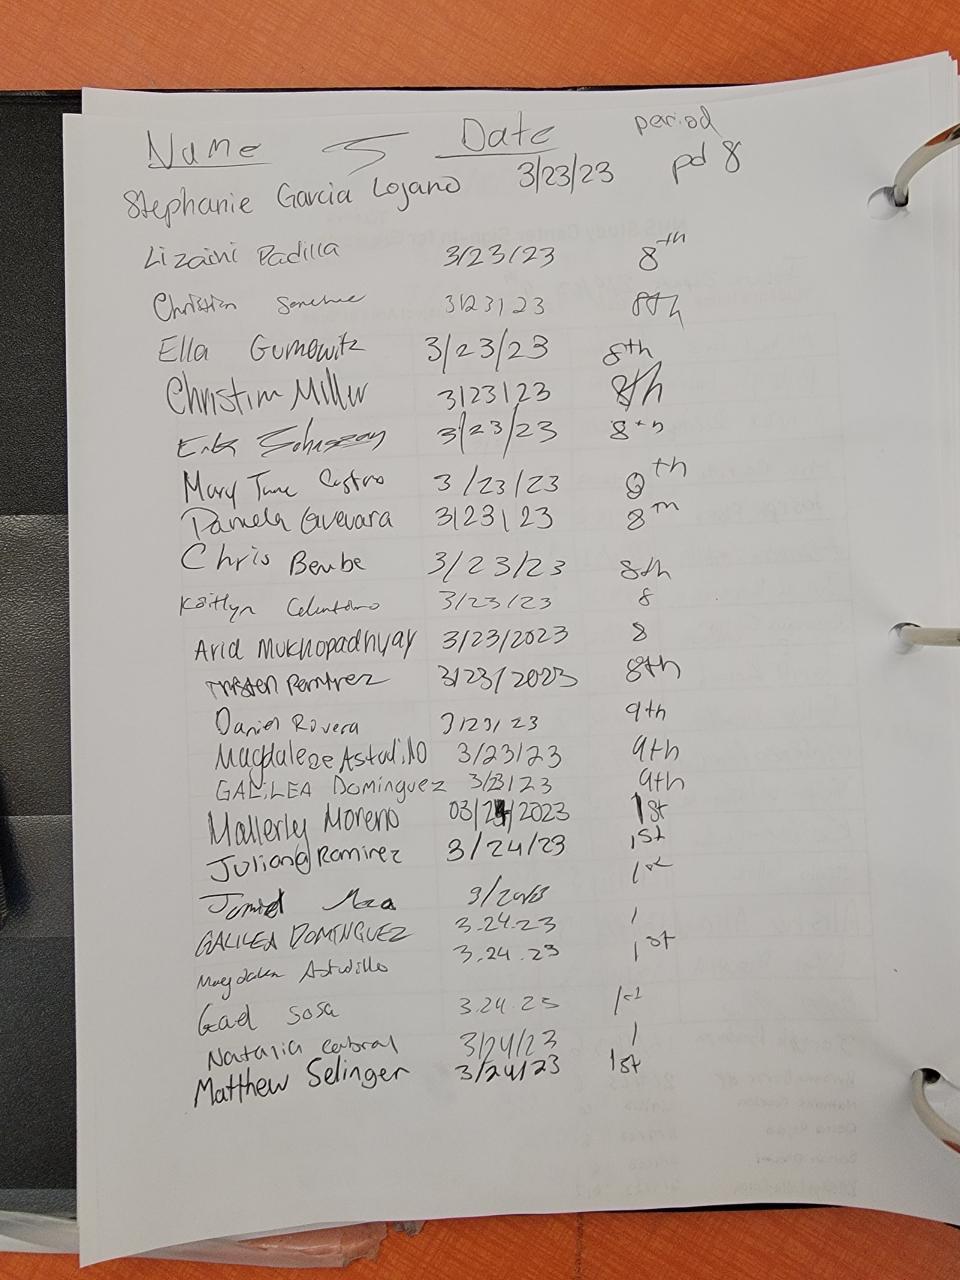 Name Date period
Stephanie Garcia Lozano 3/23/23 pd 8
Lizaini Padilla 3/23/23 8th
Christian 3/23/23 8th
Ella Gurnowitz 3/23/23 8th
Christian Miller 3/23/23 8th
3/23/23 8th
Mary Jane Castro 3/23/23 8th
Pamela Guevara 3/23/23 8th
Chris Berube 3/23/23 8th
Kaitlyn 3/23/23 8
Aria Mukhopadhyay 3/23/2023 8
Tristen Ramirez 3/23/2023 8th
Daniel Rivera 3/23/23 9th
Magdalene Astudillo 3/23/23 9th
GALILEA Dominguez 3/23/23 9th
Mallerly Moreno 03/24/2023 1st
Juliana Ramirez 3/24/23 1st
1st
GALILEA DOMINGUEZ 3.24.23 1
Magdalen Astudillo 3.24.23 1st
Gael Sosa 3.24.23 1st
Natalia Cabral 3/24/23 1
Matthew Selinger 3/24/23 1st